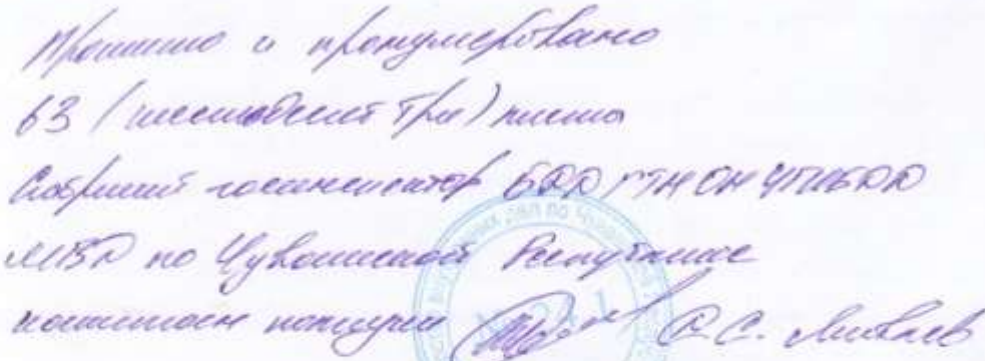 Прошито и пронумеровано
63 (шестьдесят три) листа
Старший госинспектор БДД ГТН ОН УГИБДД
МВД по Чувашской Республике
капитан полиции С.